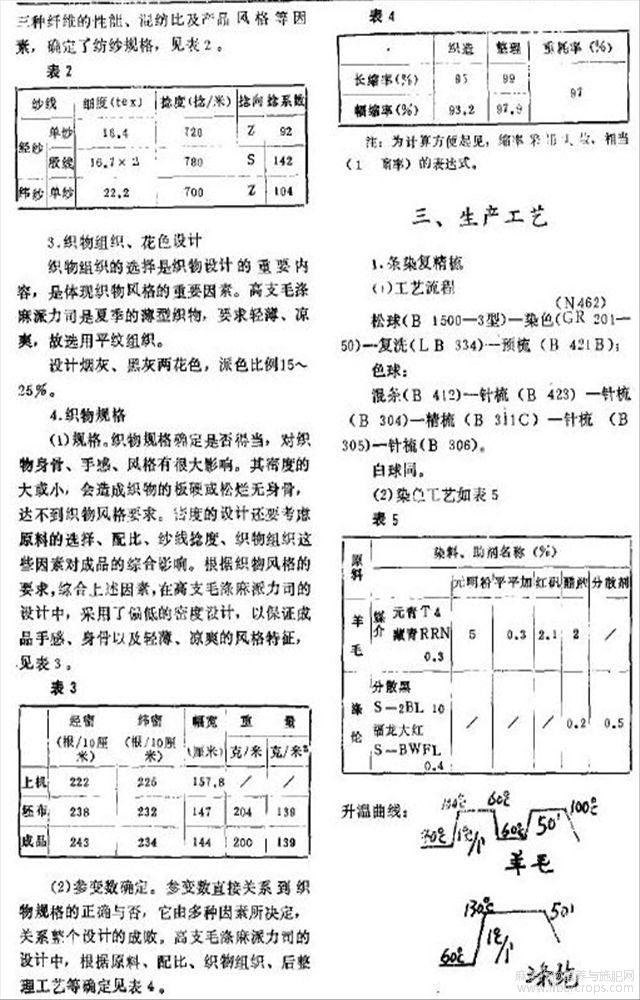 三种纤维的性能、混纺比及产品风格等因
素，确定了纺纱规格，见表2。
表2
纱线 细度(tex) 捻度(捻/米) 捻向 捻系数
经纱 单纱 16.4 720 Z 92
股线 16.7×2 780 S 142
纬纱 单纱 22.2 700 Z 104
3.织物组织、花色设计
织物组织的选择是织物设计的重要内
容，是体现织物风格的重要因素。高支毛涤
麻派力司是夏季的薄型织物，要求轻薄、凉
爽，故选用平纹组织。
设计烟灰、黑灰两花色，派色比例15～
25%。
4.织物规格
(1)规格。织物规格确定是否得当，对织
物身骨、手感、风格有很大影响。其密度的
大或小，会造成织物的板硬或松烂无身骨，
达不到织物风格要求。密度的设计还要考虑
原料的选择、配比、纱线捻度、织物组织这
些因素对成品的综合影响。根据织物风格的
要求，综合上述因素，在高支毛涤麻派力司的
设计中，采用了偏低的密度设计，以保证成
品手感、身骨以及轻薄、凉爽的风格特征，
见表3。
表3
经密 纬密 幅宽 重量
(根/10厘米) (根/10厘米) (厘米) 克/米 克/米²
上机 222 226 157.8 / /
坯布 238 232 147 204 139
成品 243 234 144 200 139
(2)参变数确定。参变数直接关系到织
物规格的正确与否，它由多种因素所决定，
关系整个设计的成败。高支毛涤麻派力司的
设计中，根据原料、配比、织物组织、后整
理工艺等确定见表4。
表4
织造 整理 重耗率(%)
长缩率(%) 95 99 97
幅缩率(%) 93.2 97.9
注：为计算方便起见，缩率采用 相当
(1 缩率)的表达式。
三、生产工艺
1.条染复精梳
(1)工艺流程
(N462)
松球(B 1500—3型)—染色(GR 201—
50)—复洗(LB 334)—预梳(B 421B)；
色球：
混条(B 412)—针梳(B 423)—针梳
(B 304)—精梳(B 311C)—针梳(B
305)—针梳(B 306)。
白球同。
(2)染色工艺如表5
表5
原料 染料、助剂名称(%)
元明粉 平平加 红矾 醋酸 分散剂
羊毛 媒介 元青T4
藏青RRN 0.3 5 0.3 2.1 2 /
涤纶 分散黑
S—2BL 10
福龙大红
S—BWFL 0.4 / / / 0.2 0.5
升温曲线：
100℃ 60℃ 100℃
30℃ 1℃/1′ 60℃ 50′
羊毛
130℃ 50′
1℃/1′
60℃
涤纶